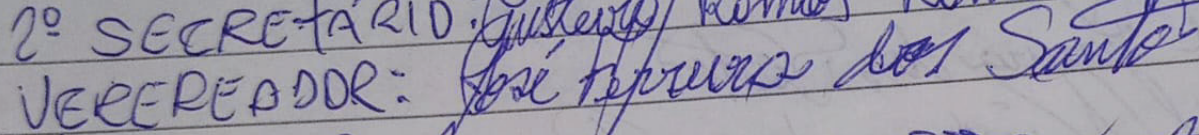 2º SECRETÁRIO: Gustavo
VEREREADOR: José Ferreira dos Santos